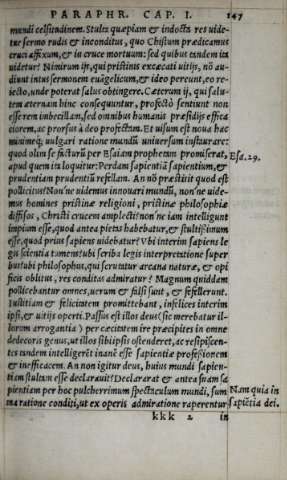 PARAPHR. CAP. I. 147
mundi celsitudinem. Stulta quæpiam & indocta res uide-
tur sermo rudis & inconditus, quo Christum prædicamus
cruci affixum, & in cruce mortuum: sed quibus tandem ita
uidetur? Nimirum ijs, qui pristinis excæcati uitijs, nō au-
diunt intus sermonem euāgelicum, & ideo pereunt, eo re-
iecto, unde poterat salus obtingere. Cæterum ij, qui salu-
tem æternam hinc consequuntur, profectò sentiunt non
esse rem imbecillam, sed omnibus humanis præsidijs effica
ciorem, ac prorsus à deo profectam. Et uisum est noua hac
minimeq́; uulgari ratione mundū uniuersum instaurare:
quod olim se facturū per Esaiam prophetam promiserat, Esa. 29.
apud quem ita loquitur: Perdam sapientiā sapientium, &
prudentiam prudentiū refellam. An nō præstitit quod est
pollicitus? Non'ne uidemus innouari mundū, non'ne uide-
mus homines pristinæ religioni, pristinæ philosophiæ
diffisos, Christi crucem amplecti? non'ne iam intelligunt
impium esse, quod antea pietas habebatur, & stultissimum
esse, quod prius sapiens uidebatur? Vbi interim sapiens le
gis scientia tumens? ubi scriba legis interpretatione super
bus? ubi philosophus, qui scrutatur arcana naturæ, & opi
ficis oblitus, res conditas admiratur? Magnum quiddam
pollicebantur omnes, uerum & falsi sunt, & fefellerunt.
Iustitiam & felicitatem promittebant, infelices interim
ipsi, & uitijs operti. Passus est illos deus (sic merebatur il-
lorum arrogantia) per cæcitatem ire præcipites in omne
dedecoris genus, ut illos sibiipsis ostenderet, ac resipiscen-
tes tandem intelligerēt inanē esse sapientiæ professionem
& inefficacem. An non igitur deus, huius mundi sapien-
tiam stultam esse declarauit? Declararat & antea suam sa
pientiam per hoc pulcherrimum spectaculum mundi, sum- Nam quia in
ma ratione conditi, ut ex operis admiratione raperentur sapiētia dei.
kkk 2 in